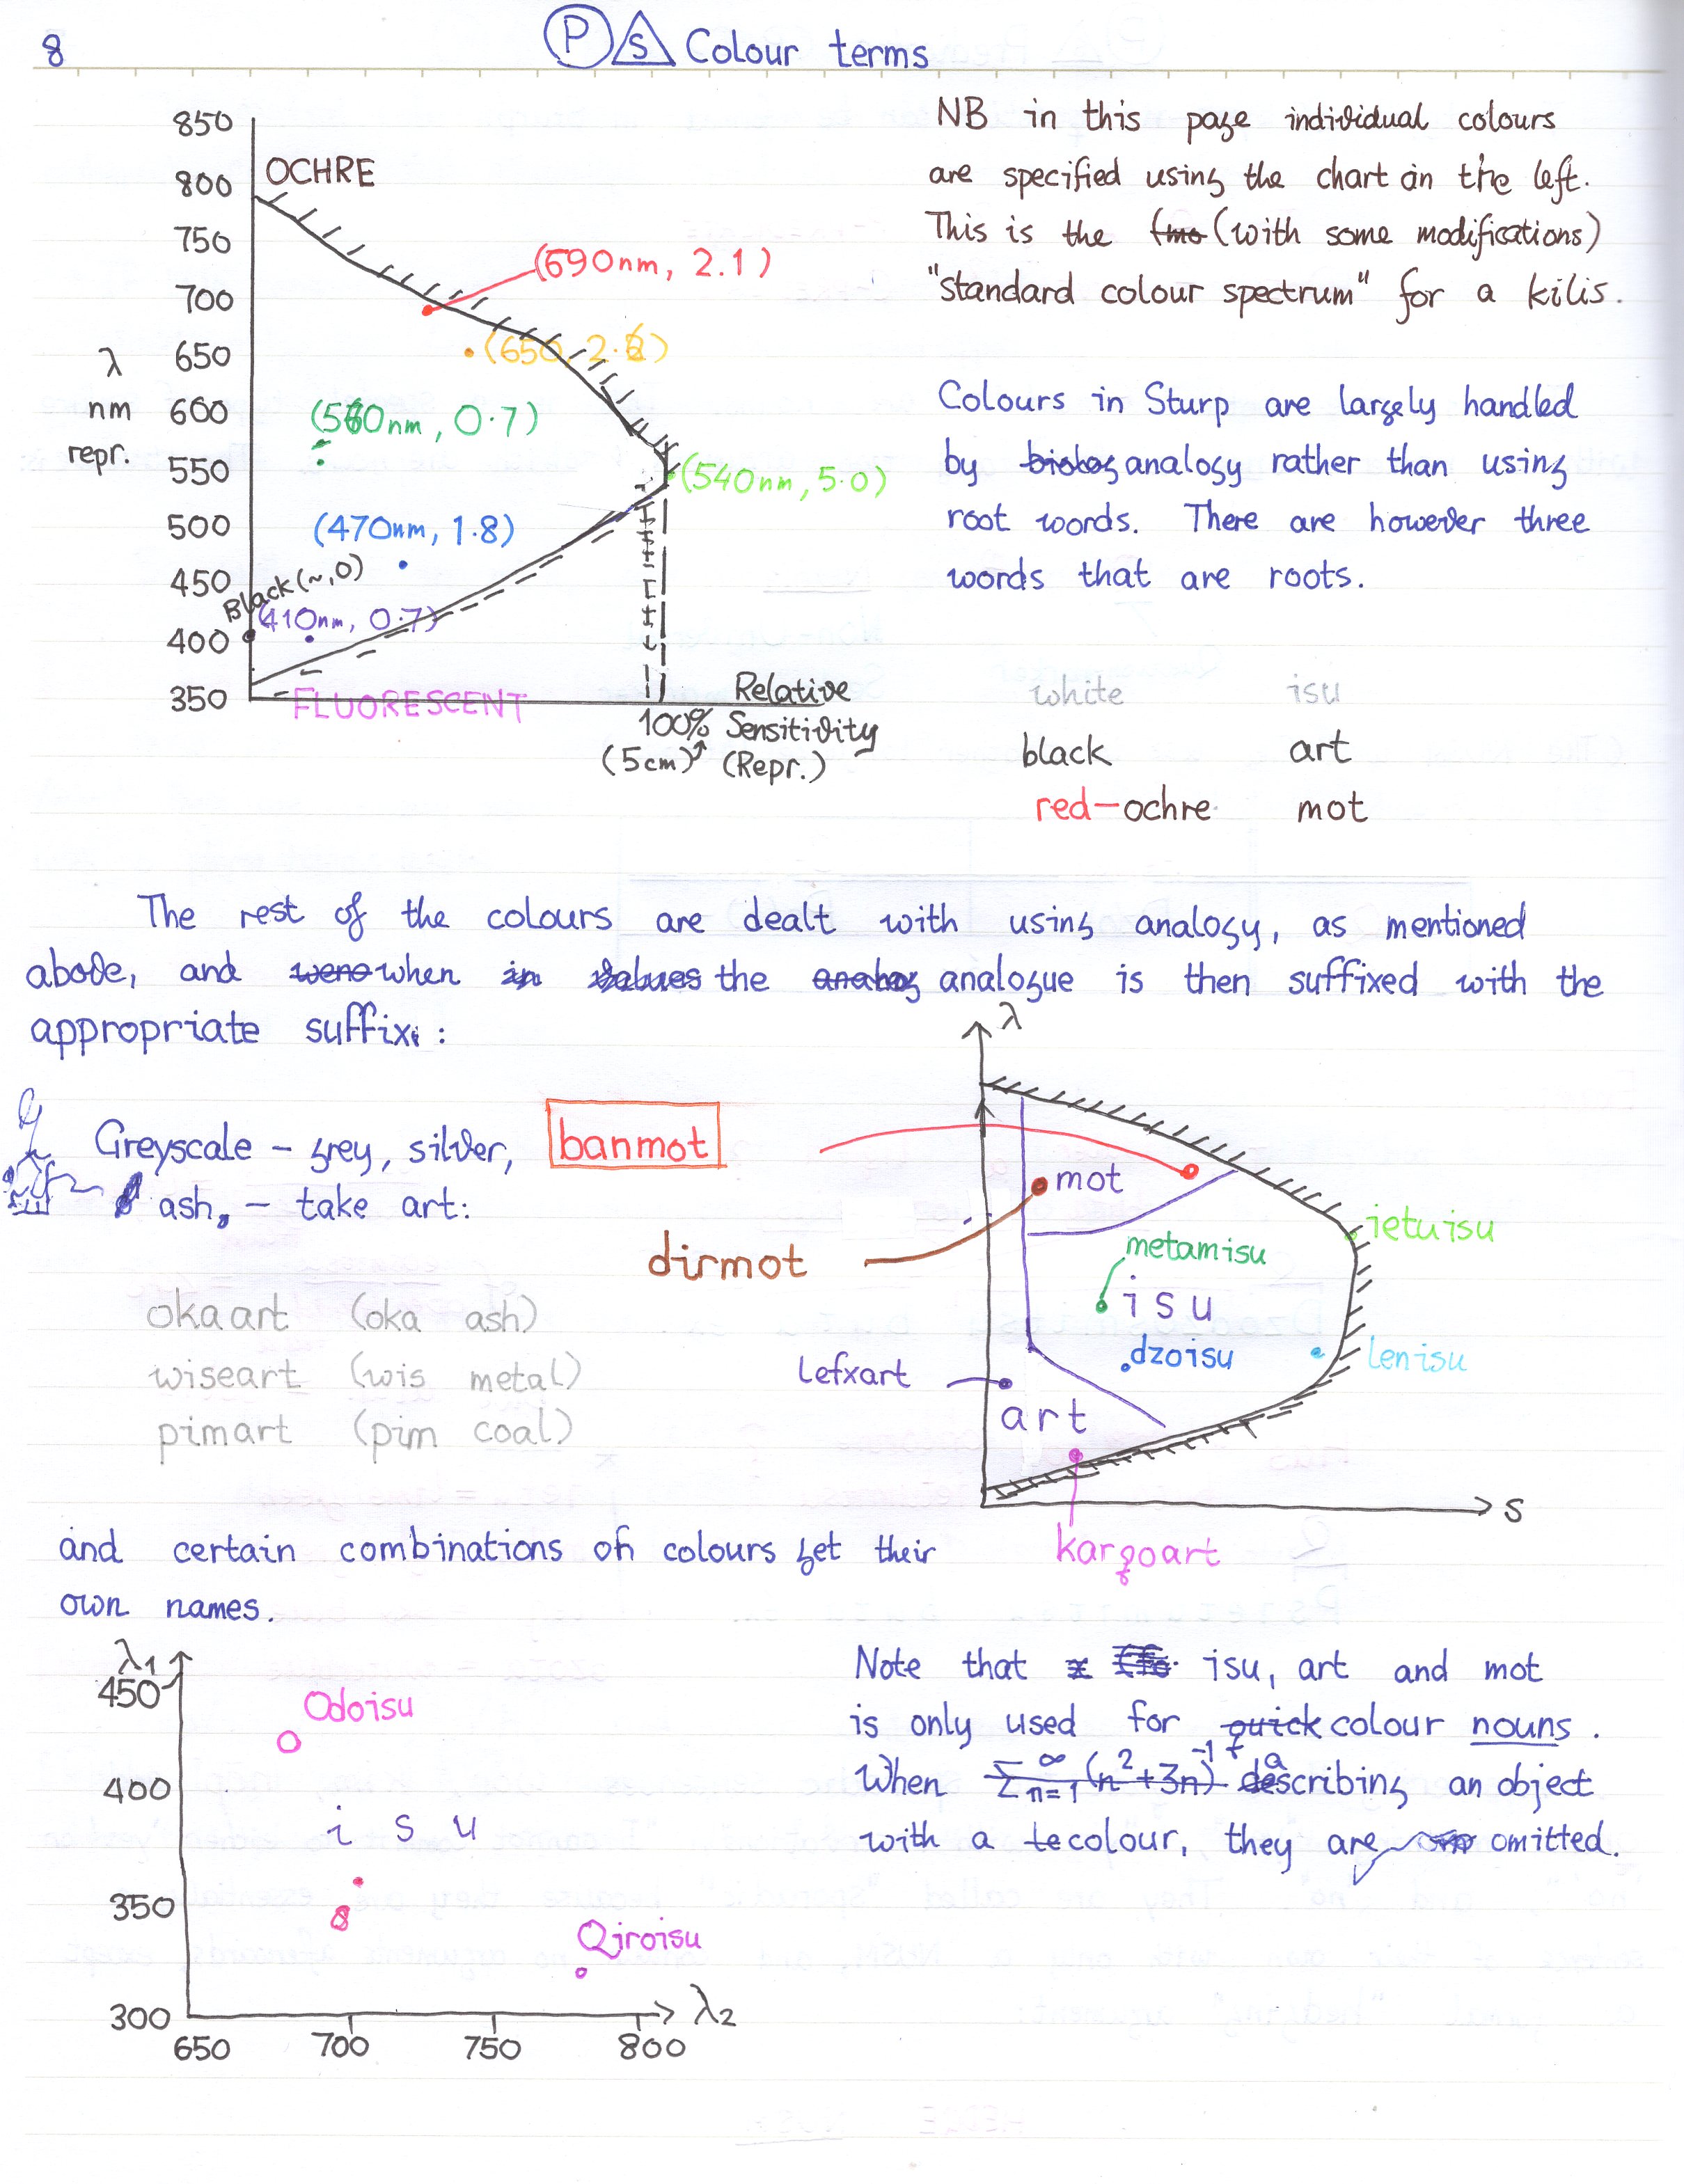 8
P S Colour terms
850
OCHRE
800
750
700
650
600
550
500
450
400
350
λ
nm
repr.
(690nm, 2.1)
(540nm, 5.0)
(470nm, 1.8)
Black (~,0)
(410nm, 0.7)
FLUORESCENT
Relative
100% Sensitivity
(5cm) (Repr.)
NB in this page individual colours
are specified using the chart on the left.
This is the (with some modifications)
"standard colour spectrum" for a kilis.
Colours in Sturp are largely handled
by analogy rather than using
root words. There are however three
words that are roots.
white isu
black art
red-ochre mot
The rest of the colours are dealt with using analogy, as mentioned
above, and when in values the analogue is then suffixed with the
appropriate suffix:
Greyscale - grey, silver,
ash, - take art:
okaart (oka ash)
wiseart (wis metal)
pimart (pim coal)
banmot
dirmot
lefxart
λ
mot
ietuisu
metamisu
isu
dzoisu
lenisu
art
s
karqoart
and certain combinations of colours get their
own names.
λ1
450
400
350
300
650 700 750 800
λ2
Odoisu
isu
Qiroisu
Note that isu, art and mot
is only used for quick colour nouns.
When ∑ n=1 ∞ (n²+3n)-1 describing an object
with a colour, they are omitted.